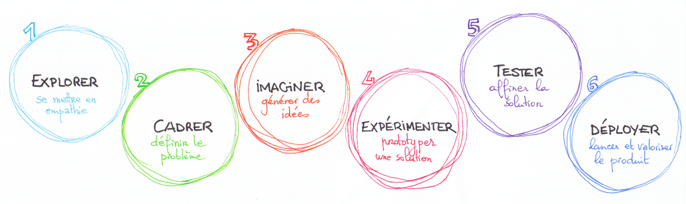 1
EXPLORER
se mettre en
empathie
2
CADRER
définir le
problème
3
iMAGiNER
générer des
idées
4
EXPÉRiMENTER
prototyper
une solution
5
TESTER
affiner la
solution
6
DÉPLOYER
lancer et valoriser
le produit